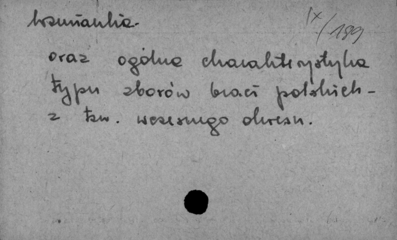 wzmianka.
IX/189
oraz ogólna charakterystyka
typu zborów braci polskich -
z tzw. wczesnego okresu.